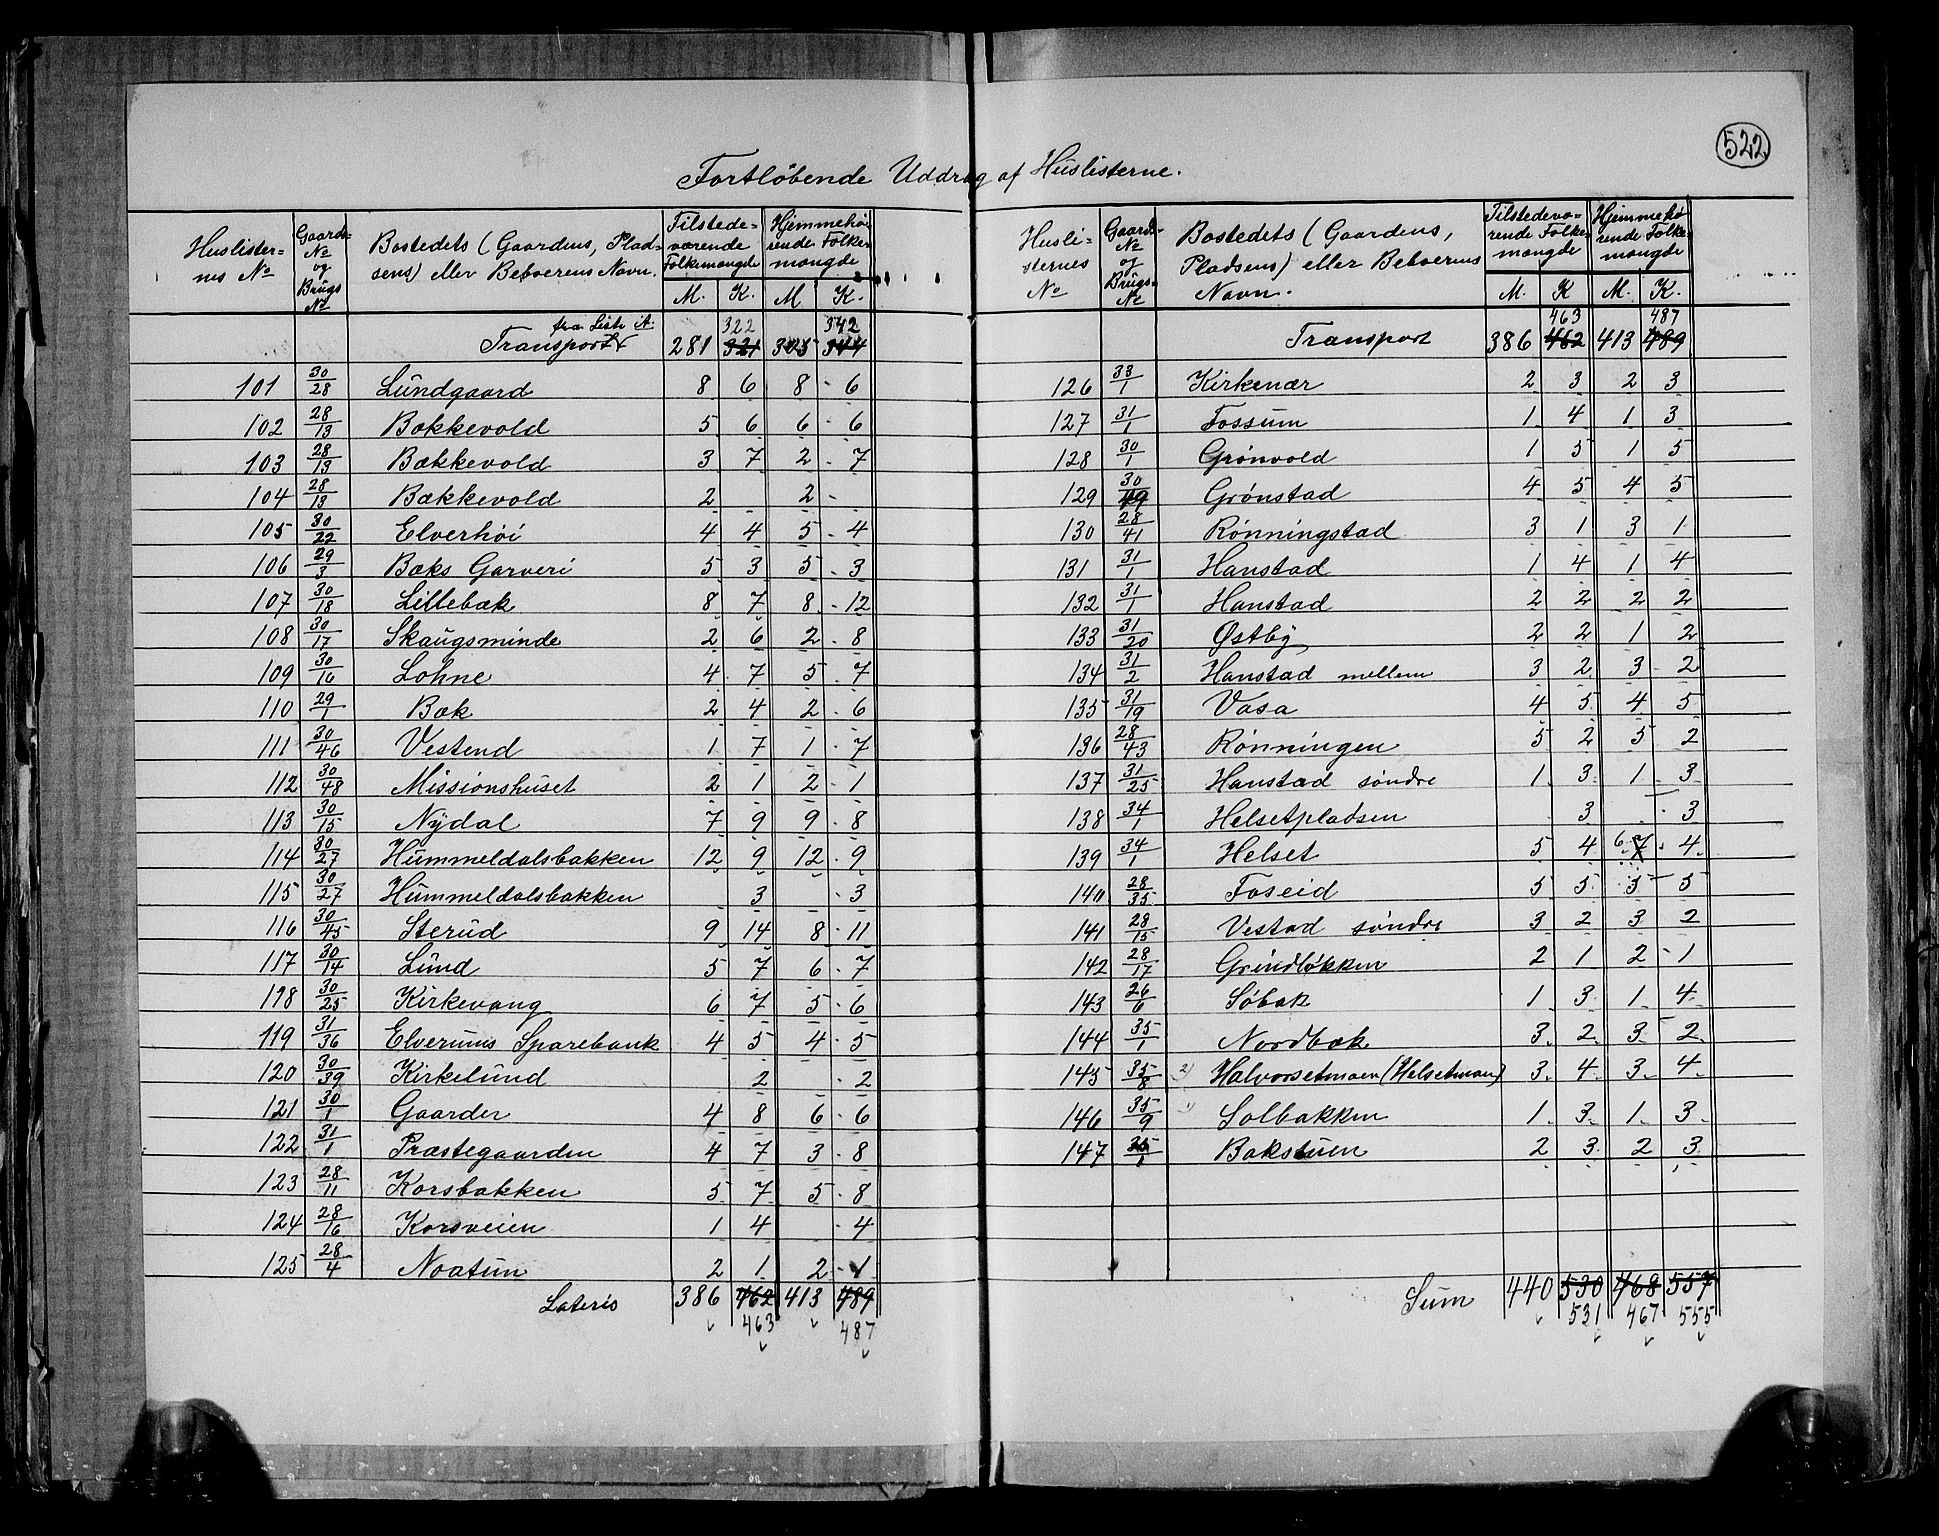 522
Fortløbende Uddrag af Huslisterne.
Huslisternes No | Gaards No og Brugs No | Bostedets (Gaardens, Pladsens) eller Beboerens Navn. | Tilstedeværende Folkemængde M. K. | Hjemmehørende Folkemængde M K.
fra Liste A. 322 342
Transport 281 321 325 344
101 30/28 Lundgaard 8 6 8 - 6
102 28/13 Bækkevold 5 6 6 - 6
103 28/13 Bækkevold 3 7 2 - 7
104 28/13 Bækkevold 2 2 -
105 30/22 Elverhöi 4 4 5 - 4
106 29/3 Bæks Garveri 5 3 5 - 3
107 30/18 Lillebæk 8 7 8 - 12
108 30/17 Skaugsminde 2 6 2 - 8
109 30/16 Lohne 4 7 5 - 7
110 29/1 Bæk 2 4 2 - 6
111 30/46 Vestend 1 7 1 - 7
112 30/48 Missionshuset 2 1 2 - 1
113 30/15 Nydal 7 9 9 - 8
114 30/27 Hummeldalsbakken 12 9 12 - 9
115 30/27 Hummeldalsbakken 3 - 3
116 30/45 Sterud 9 14 8 - 11
117 30/14 Lund 5 7 6 - 7
118 30/25 Kirkevang 6 7 5 - 6
119 31/36 Elverums Sparebank 4 5 4 - 5
120 30/39 Kirkelund 2 - 2
121 30/1 Gaarder 4 8 6 - 6
122 31/1 Præstegaarden 4 7 3 - 8
123 28/11 Korsbakken 5 7 5 - 8
124 28/16 Korsveien 1 4 - 4
125 28/4 Noatun 2 1 2 - 1
Lateris 386 462 413 489
463 487
Huslisternes No | Gaards No og Brugs- No | Bostedets (Gaardens, Pladsens) eller Beboerens Navn. | Tilstedeværende Folkemængde M. K | Hjemmehørende Folkemængde M. K.
463 487
Transport 386 462 413 489
126 33/1 Kirkenær 2 3 2 3
127 31/1 Fossum 1 4 1 3
128 30/1 Grønvold 1 5 1 5
129 30/49 Grønstad 4 5 4 5
130 28/41 Rønningstad 3 1 3 1
131 31/1 Hanstad 1 4 1 4
132 31/1 Hanstad 2 2 2 2
133 31/20 Østby 2 2 1 2
134 31/2 Hanstad mellem 3 2 3 2
135 31/19 Vasa 4 5 4 5
136 28/43 Rønningen 5 2 5 2
137 31/25 Hanstad søndre 1 3 1 3
138 34/1 Helsetpladsen 3 - 3
139 34/1 Helset 5 4 6 7 4
140 28/35 Foseid 5 5 5 5
141 28/15 Vestad søndre 3 2 3 2
142 28/17 Grindløkken 2 1 2 - 1
143 26/6 Søbak 1 3 1 4
144 35/1 Nordbæk 3 2 3 2
145 35/8 2) Halvorsetmoen (Helsetmoen) 3 4 3 4
146 35/9 1) Solbakken 1 3 1 3
147 35/1 Bakstuen 2 3 2 3
Sum 440 530 468 557
531 467 555